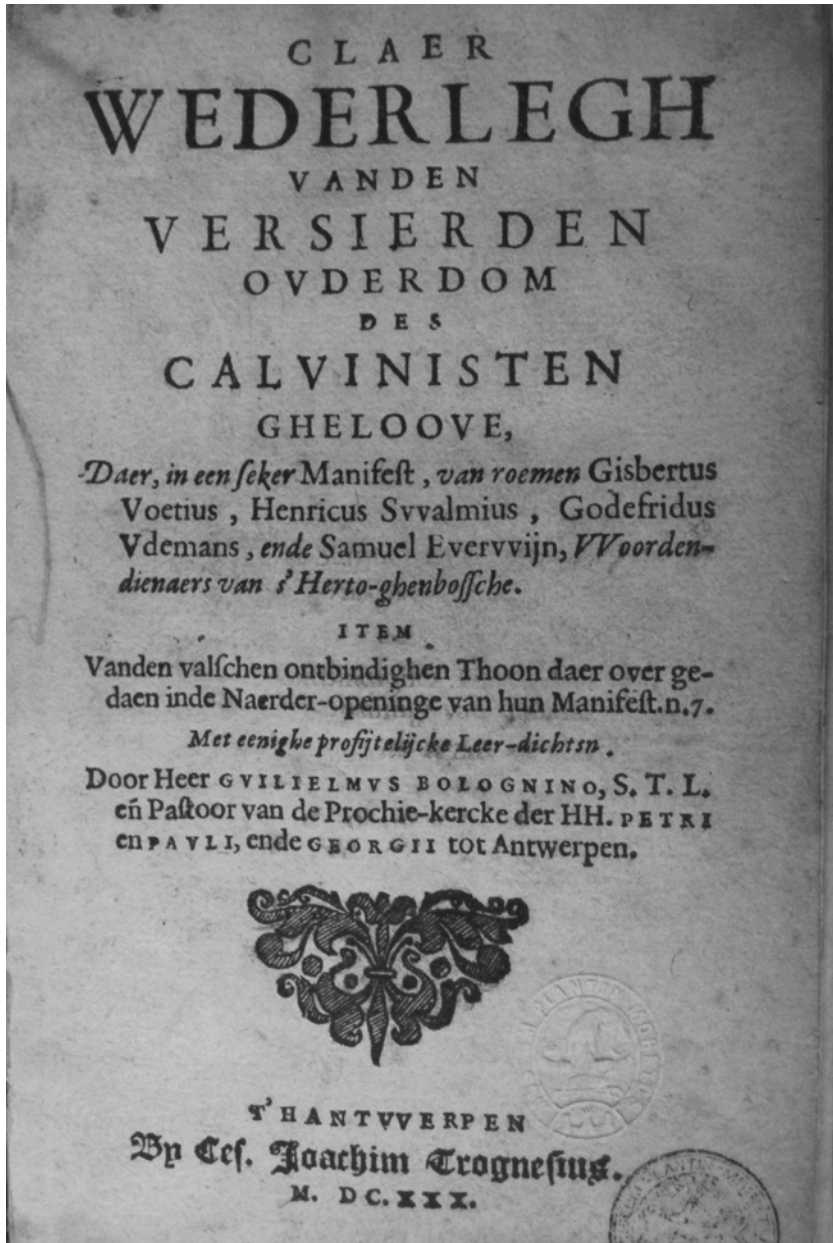 CLAER
WEDERLEGH
VANDEN
VERSIERDEN
OVDERDOM
DES
CALVINISTEN
GHELOOVE,
Daer, in een ſeker Manifeſt, van roemen Gisbertus
Voetius, Henricus Svvalmius, Godefridus
Vdemans, ende Samuel Evervvijn, VVoorden-
dienaers van s'Herto-ghenboſſche.
ITEM
Vanden valſchen ontbindighen Thoon daer over ge-
daen inde Naerder-openinge van hun Manifeſt.n.7.
Met eenighe profijtelijcke Leer-dichtsn.
Door Heer GVILIELMVS BOLOGNINO, S. T. L.
en̄ Paſtoor van de Prochie-kercke der HH. PETRI
en PAVLI, ende GEORGII tot Antwerpen.
T'HANTVVERPEN
By Ceſ. Joachim Trogneſius.
M. DC. XXX.